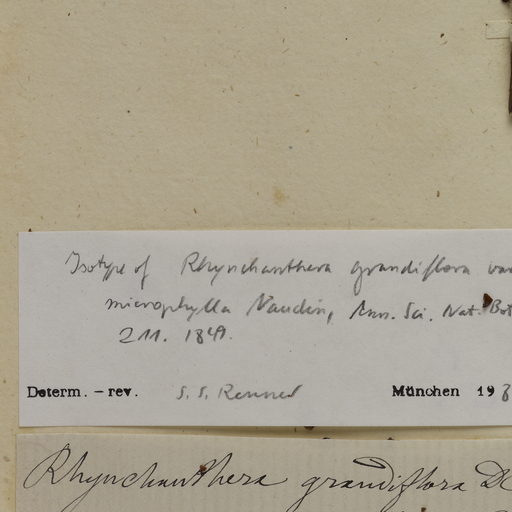 Isotype of Rhynchanthera grandiflora var
microphylla Naudin, Ann. Sci. Nat. Bot
211. 1849.
Determ. – rev. S. S. Renner München 198
Rhynchanthera grandiflora DC